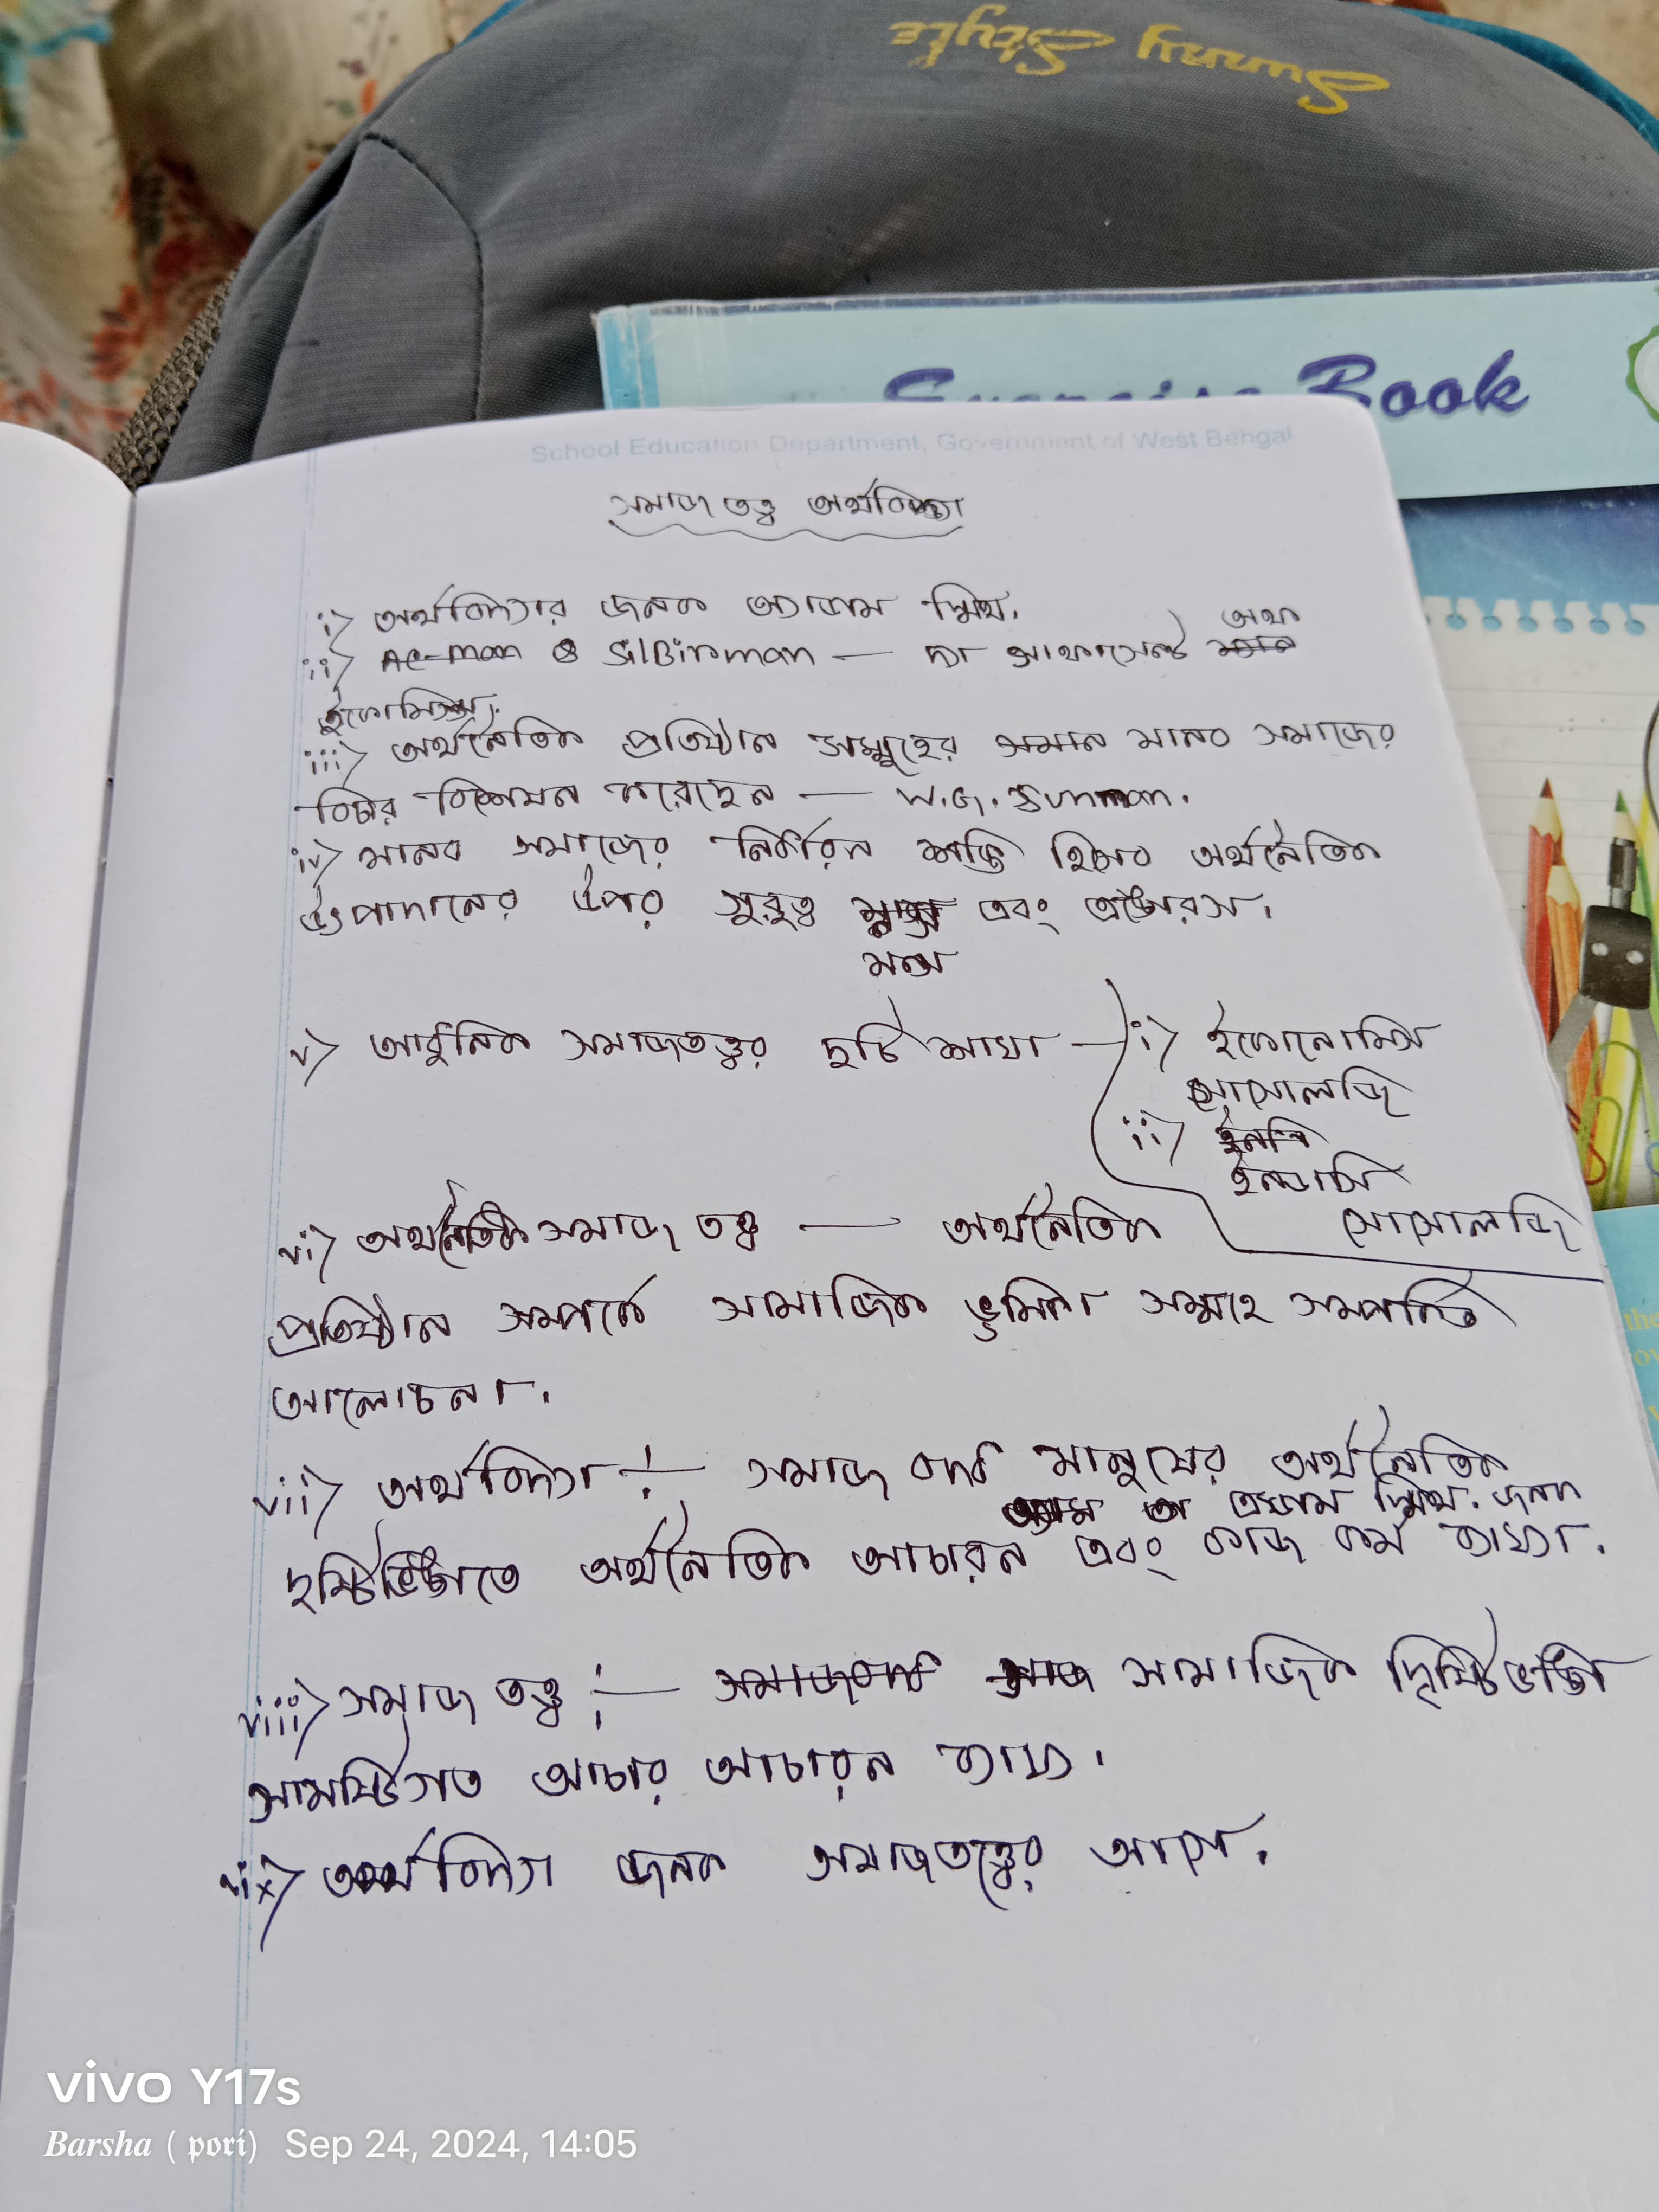 Sunny Style
Exercise Book
School Education Department, Government of West Bengal
সমাজ তত্ত্ব অর্থবিদ্যা
i) অর্থবিদ্যার জনক অ্যাডাম স্মিথ.
ii) Ac-man ও SilBirman — দা সোফাসেন্ট অফ
ইকোমিক্স.
iii) অর্থনৈতিক প্রতিষ্ঠান সমূহের সমান মানব সমাজের
বিচার বিশেষন করেছেন — W.G. Summan.
iv) মানব সমাজের নির্ধারন শক্তি হিসাব অর্থনৈতিক
উপাদানের উপর গুরুত্ব এবং এঙ্গেরস.
মাক্স
v) আধুনিক সমাজতত্ত্বর দুটি শাখা — i) ইকোনোমিস
সোসোলজি
ii)
ইন্ডাসি
সোসোলজি
vi) অর্থনৈতিক সমাজ তত্ত্ব — অর্থনৈতিক
প্রতিষ্ঠান সম্পর্কে সামাজিক ভূমিকা সমূহে সম্পর্কিত
আলোচনা.
vii) অর্থবিদ্যা ÷ সমাজ বদ্ধ মানুষের অর্থনৈতিক
এ্যডাম স্মিথ. জনক
দৃষ্টিভঙ্গিতে অর্থনৈতিক আচারন এবং কাজ কর্ম ব্যাখ্যা.
viii) সমাজ তত্ত্ব ÷ সামাজিক দৃষ্টিভঙ্গি
সামষ্টিগত আচার আচারন ব্যাখ্য.
ix) অর্থবিদ্যা জনক সমাজতত্ত্বের আগে.
vivo Y17s
Barsha ( pori) Sep 24, 2024, 14:05